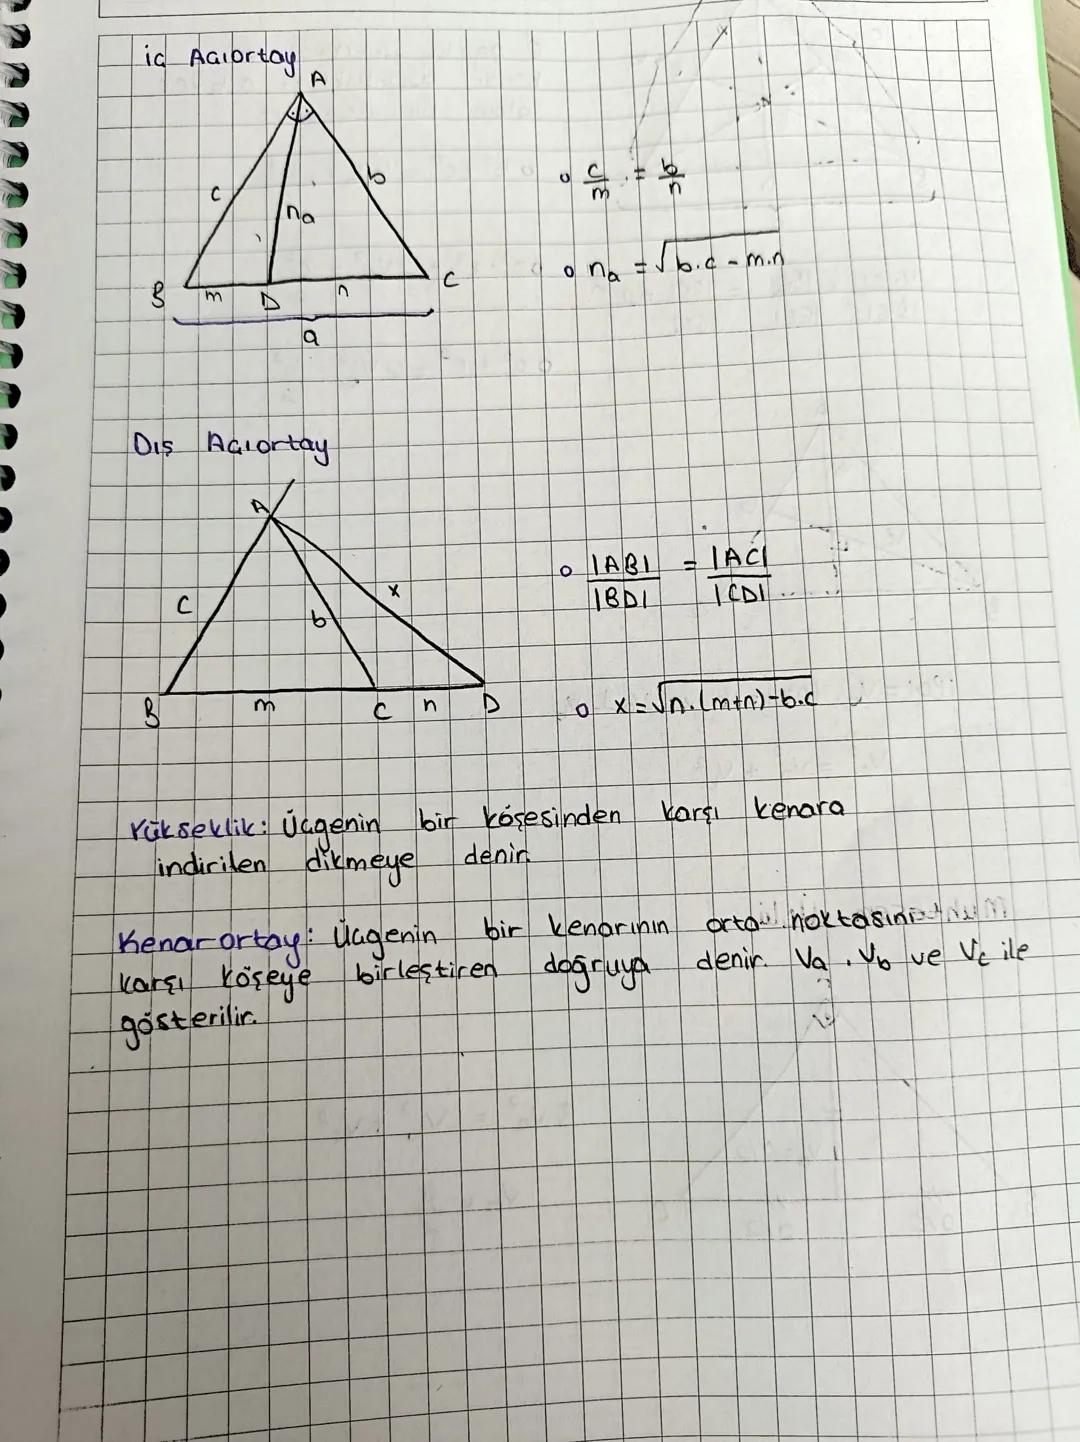 iç Açıortay
A
c
b
na
B
m
D
n
C
a
c/m = b/n
na = √b.c - m.n
Dış Açıortay
A
c
b
x
B
m
C
n
D
|AB|/|BD| = |AC|/|CD|
x = √n.(m+n)-b.c
Yükseklik: Üçgenin bir köşesinden karşı kenara
indirilen dikmeye denir.
Kenarortay: Üçgenin bir kenarının orta noktasını
karşı köşeye birleştiren doğruya denir. Va, Vb ve Vc ile
gösterilir.